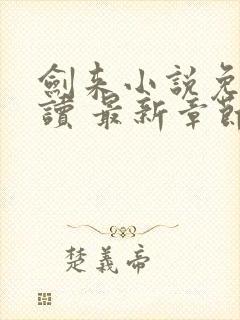 劍来小說免
讀 最新章節
楚義帝